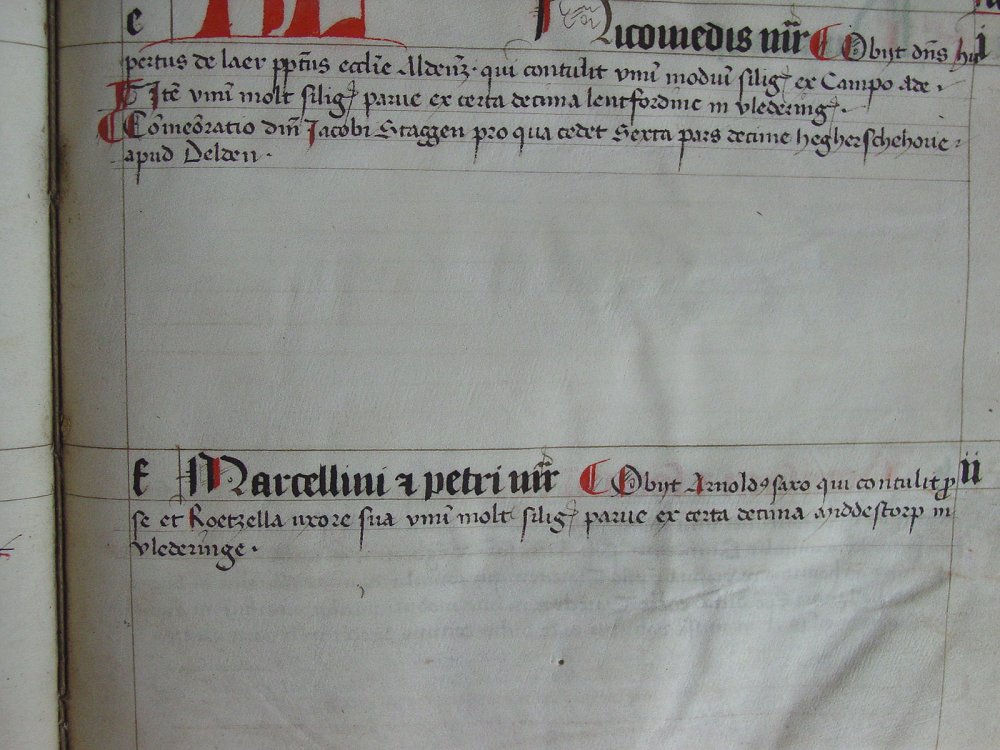 e KL Nicomedis mr̄r Obijt dn̄s hu i
pertus de laer ppt̄us eccl̄ie Aldenz̄ · qui contulit vnū modiū siliḡ ex Campo Ade ·
Itē vnū molt siliḡ parue ex certa decima lentfordinc in vlederinḡ ·
Cōmeōratio din̄ Jacobi Staggen pro qua cedet Sexta pars decime hegherschehoue
apud Delden ·
f Marcellini ⁊ petri mr̄r Obijt Arnoldꝰ saxo qui contulit ꝓ ii
se et Roetzella uxore sua vnū molt siliḡ parue ex certa decima middestorp in
vlederinge ·